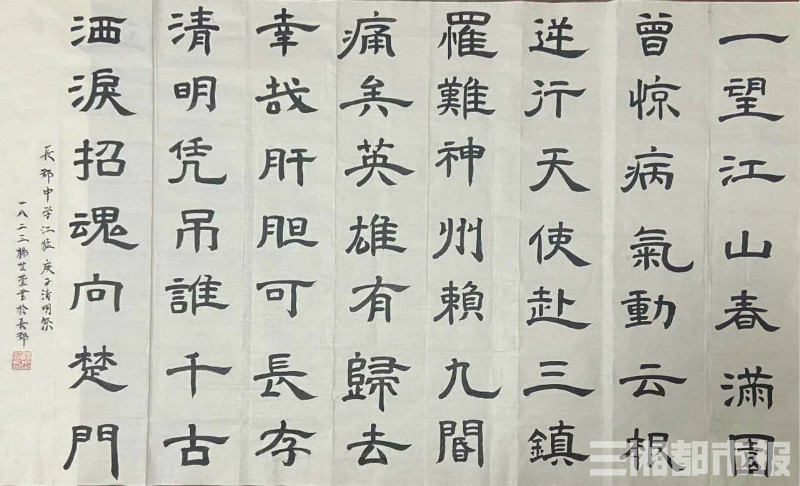 一望江山春滿園
曾惊病氣動云根
逆行天使赴三鎮
罹難神州賴九閽
痛矣英雄有歸去
幸哉肝胆可長存
清明凭吊誰千古
洒淚招魂向楚門
長郡中学江猛 庚子清明祭
一八二三楊芷萱書於長郡
三湘都市报